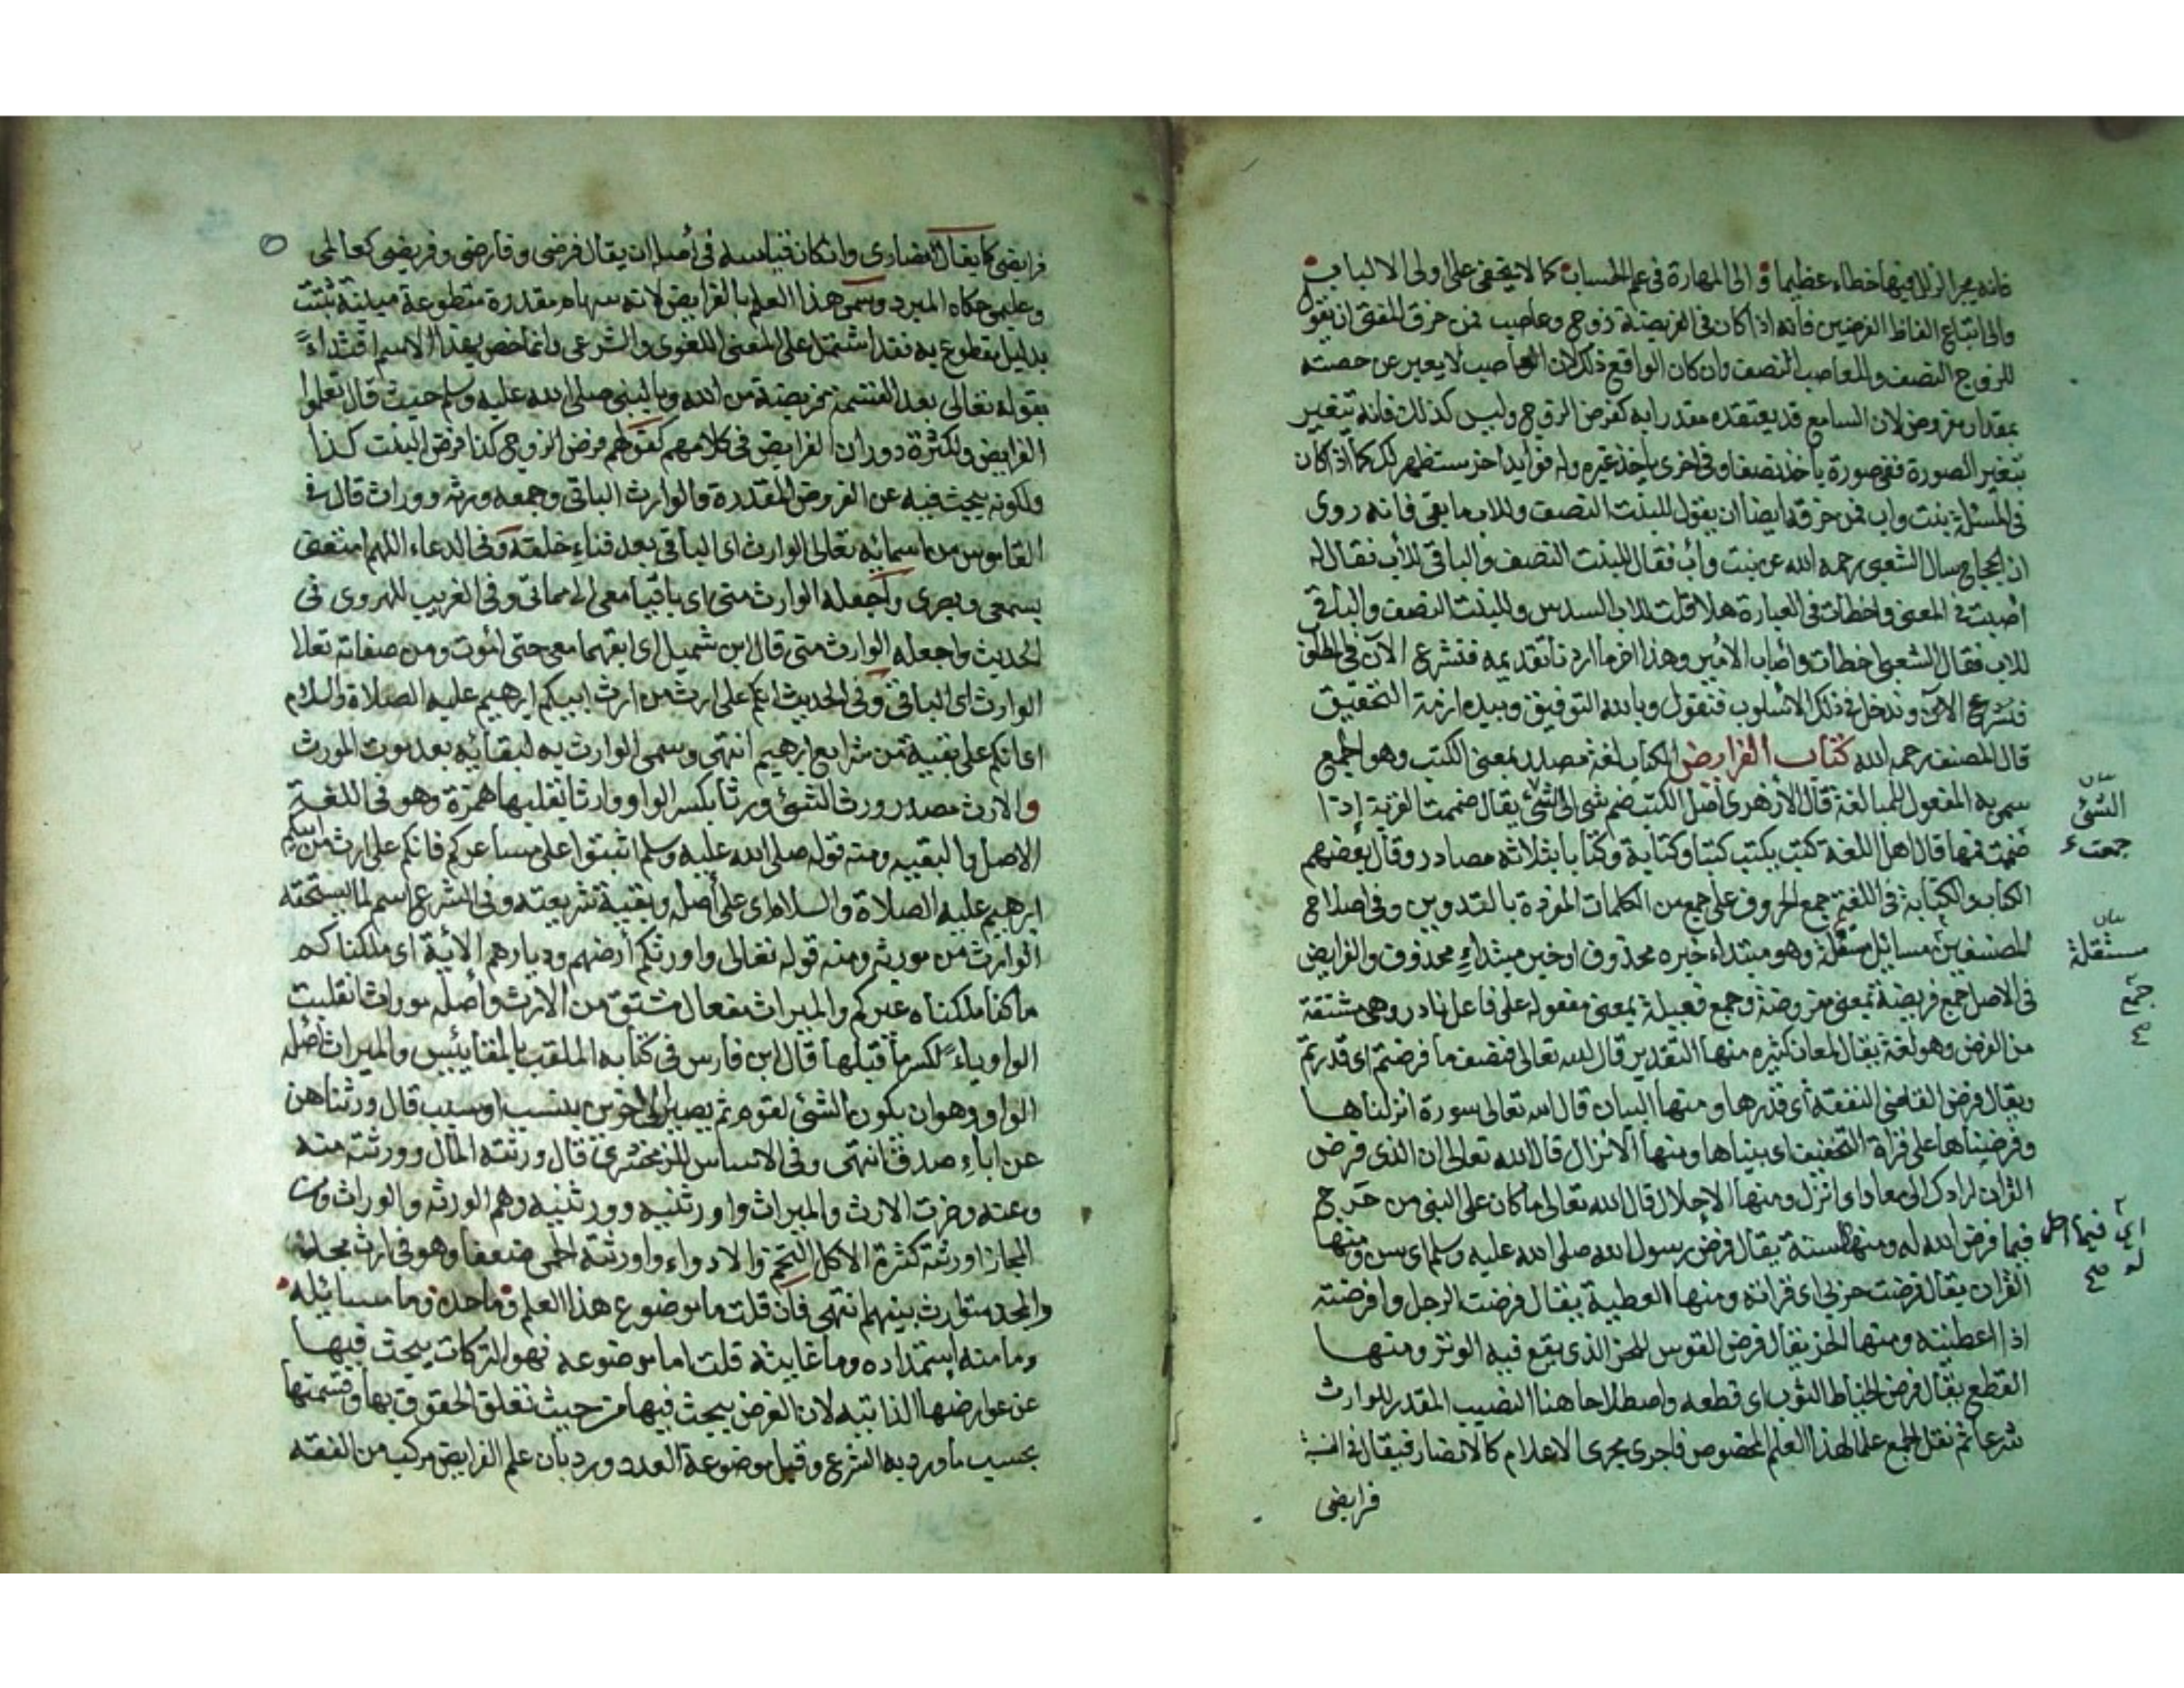 فانه يجر الزلل فيها خطاء عظيما والى المهارة في علم الحساب كما لا يخفى على اولى الالباب
والى اتباع الفاظ الفرضيين فانه اذا كان في الفريضة زوج وعاصب فمن حرق المفتى ان يقول
للزوج النصف وللعاصب النصف وان كان الواقع ذلك لان العاصب لا يعبر عن حصته
بمقدار مفروض لان السامع قد يعتقده مقدرا به كفرض الزوج وليس كذلك فانه يتغير
بتغير الصورة ففي صورة ياخذ نصفا وفي اخرى ياخذ غيره وله فوايد اخر ستظهر لك كما اذا كان
في المسئلة بنت واب فمن حرقه ايضا ان يقول للبنت النصف وللاب ما بقى فانه روى
ان الحجاج سال الشعبي رحمه الله عن بنت وأب فقال للبنت النصف والباقي للأب فقال له
أصبت في المعنى واخطات في العبارة هلا قلت للاب السدس وللبنت النصف والباقي
للاب فقال الشعبي اخطات وأصاب الامير وهذا اخر ما اردنا تقديمه فنشرع الآن في
فنشرع الآن وندخل في ذلك الاسلوب فنقول وبالله التوفيق وبيده ازمة التحقيق
قال المصنف رحمه الله كتاب الفرايض الكتاب لغة مصدر بمعنى الكتب وهو الجمع
سمى به المفعول للمبالغة قال الازهرى أصل الكتب ضم شى الى شئ يقال ضممت القربة إذا
ضممت فمها قال اهل اللغة كتب يكتب كتبا وكتابة وكتابا بثلاثة مصادر وقال بعضهم
الكتاب والكتابة في اللغة جمع الحروف على جمع من الكلمات المفردة بالتدوين وفي اصطلاح
المصنفين مسايل مستقلة وهو مبتداء خبره محذوف او خبر مبتداء محذوف والفرايض
في الاصل جمع فريضة بمعنى مفروضة وجمع فعيلة بمعنى مفعولة على فاعل نادر وهي مشتقة
من الفرض وهو لغة يقال لمعان كثيره منها التقدير قال الله تعالى فنصف ما فرضتم اى قدرتم
ويقال فرض القاضى النفقة أى قدرها ومنها البيان قال الله تعالى سورة انزلناها
وفرضناها على قراة التخفيف اى بيناها ومنها الانزال قال الله تعالى ان الذى فرض
القران لرادك الى معاد اى انزل ومنها الاحلال قال الله تعالى ما كان على النبى من حرج
فيما فرض الله له ومنها السنة يقال فرض رسول الله صلى الله عليه وسلم اى سن ومنها
القران يقال فرضت حزبى اى قراته ومنها العطية يقال فرضت الرجل وافرضته
اذا اعطيته ومنها الحز يقال فرض القوس للحز الذى يقع فيه الوتر ومنها
القطع يقال فرض الخياط الثوب اى قطعه واصطلاحا هنا النصيب المقدر للوارث
شرعا ثم نقل الجمع علما لهذا العلم المخصوص فاجرى مجرى الاعلام كالانصار فيقال في النسبة
فرايضى
بيان
الشئ
جمعت
بيان
مستقلة
جمع
صح
اى فيما احل
له صح
فرايضى كما يقال انصارى وان كان قياسه في أصله ان يقال فرضى وفارضى وفريضى كعالمى
وعليمى حكاه المبرد وسمى هذا العلم بالفرايض لانه سهام مقدرة مقطوعة مبينة ثبتت
بدليل مقطوع به فقد اشتمل على المعنى اللغوى والشرعى وانما خص بهذا الاسم اقتداءً
بقوله تعالى بعد القسمة فريضة من الله وبالنبى صلى الله عليه وسلم حيث قال تعلموا
الفرايض ولكثرة دوران الفرايض في كلامهم كقولهم فرض الزوج كذا فرض البنت كذا
ولكونه يبحث فيه عن الفروض المقدرة والوارث الباقى وجمعه ورثه ووراث قال في
القاموس من اسمائه تعالى الوارث اى الباقى بعد فناء خلقه وفي الدعاء اللهم امتعنى
بسمعى وبصرى واجعله الوارث منى اى باقيا معى الى مماتى وفي الغريب للهروى في
الحديث واجعله الوارث منى قال ابن شميل اى ابقهما معى حتى أموت ومن صفاته تعالى
الوارث اى الباقى وفي الحديث انكم على ارث من ارث ابيكم ابرهيم عليه الصلاة والسلام
اى انكم على بقية من شرايع ابرهيم انتهى وسمى الوارث به لبقائه بعد موت المورث
والارث مصدر ورث الشئ ورثا بكسر الواو وارثا بقلبها همزة وهو في اللغة
الاصل والبقيه ومنه قوله صلى الله عليه وسلم اثبتوا على مشاعركم فانكم على ارث من ابيكم
ابرهيم عليه الصلاة والسلام اى على أصله وبقية شريعته وفي الشرع اسم لما يستحقه
الوارث من مورثه ومنه قوله تعالى واورثكم أرضهم وديارهم الآية اى ملكناكم
ما كنا ملكناه غيركم والميراث مفعال مشتق من الارث وأصله موراث انقلبت
الواو ياءً لكسر ما قبلها قال ابن فارس في كتابه الملقب بالمقاييس والميراث أصله
الواو وهو ان يكون الشئ لقوم ثم يصير الى اخرين بنسب او سبب قال ورثناهن
عن اباء صدق انتهى وفي الاساس للزمخشرى قال ورثته المال وورثته منه
وعنه وحزت الارث والميراث واورثنيه وورثنيه وهم الورثه والوراث ومن
المجاز اورثته كثرة الاكل التخم والادواء واورثته الحمى ضعفا وهو في ارث مجد
والمجد متوارث بينهم انتهى فان قلت ما موضوع هذا العلم وما حده وما مسائله
وما منه استمداده وما غايته قلت اما موضوعه فهو التركات يبحث فيها
عن عوارضها الذاتيه لان الغرض يبحث فيها من حيث تعلق الحقوق بها وقسمتها
بحسب ما ورد به الشرع وقيل موضوعه العدد ورد بان علم الفرايض مركب من الفقه